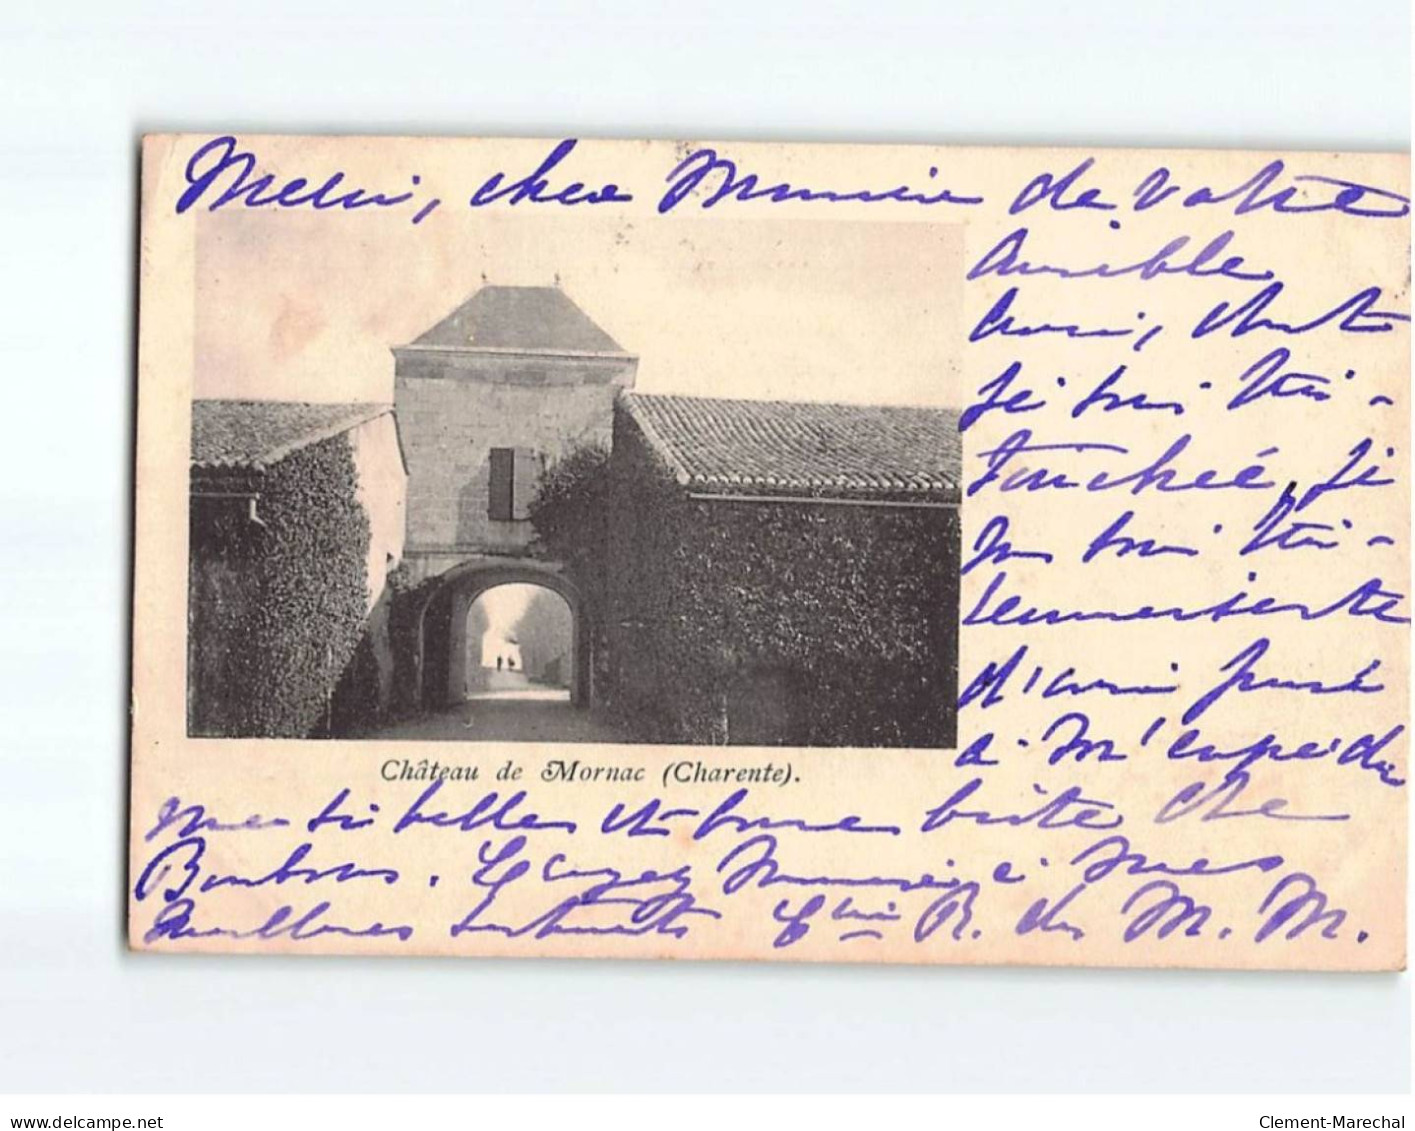 Merci, cher Monsieur de votre
aimable
envoi, dont
je suis très
touchée, je
suis très
reconnaissante
d'avoir pensé
à m'expédier
une si belle et bonne boîte de
Bonbons. Croyez Monsieur à mes
meilleurs sentiments Ctesse R. de M. M.
Château de Mornac (Charente).
delcampe.net
Clement-Marechal